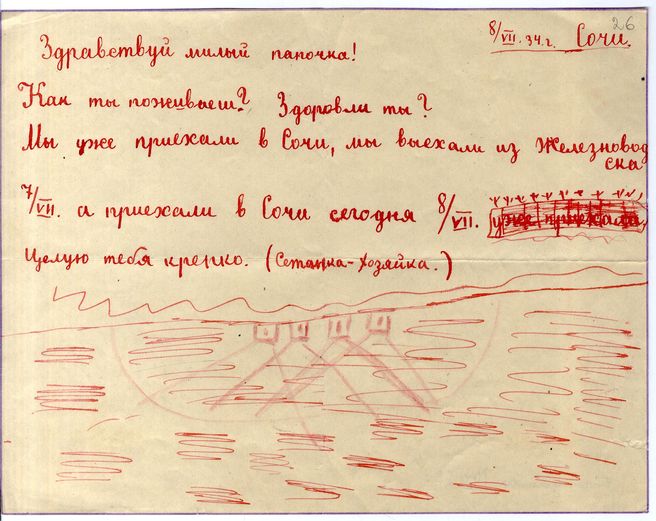 26
8/VII. 34 г. Сочи.
Здравствуй милый папочка!
Как ты поживаеш? Здоровли ты?
Мы уже приехали в Сочи, мы выехали из Железновод
ска
7/VII. а приехали в Сочи сегодня 8/VII. уже приехали
Целую тебя крепко. (Сетанка-Хозяйка.)